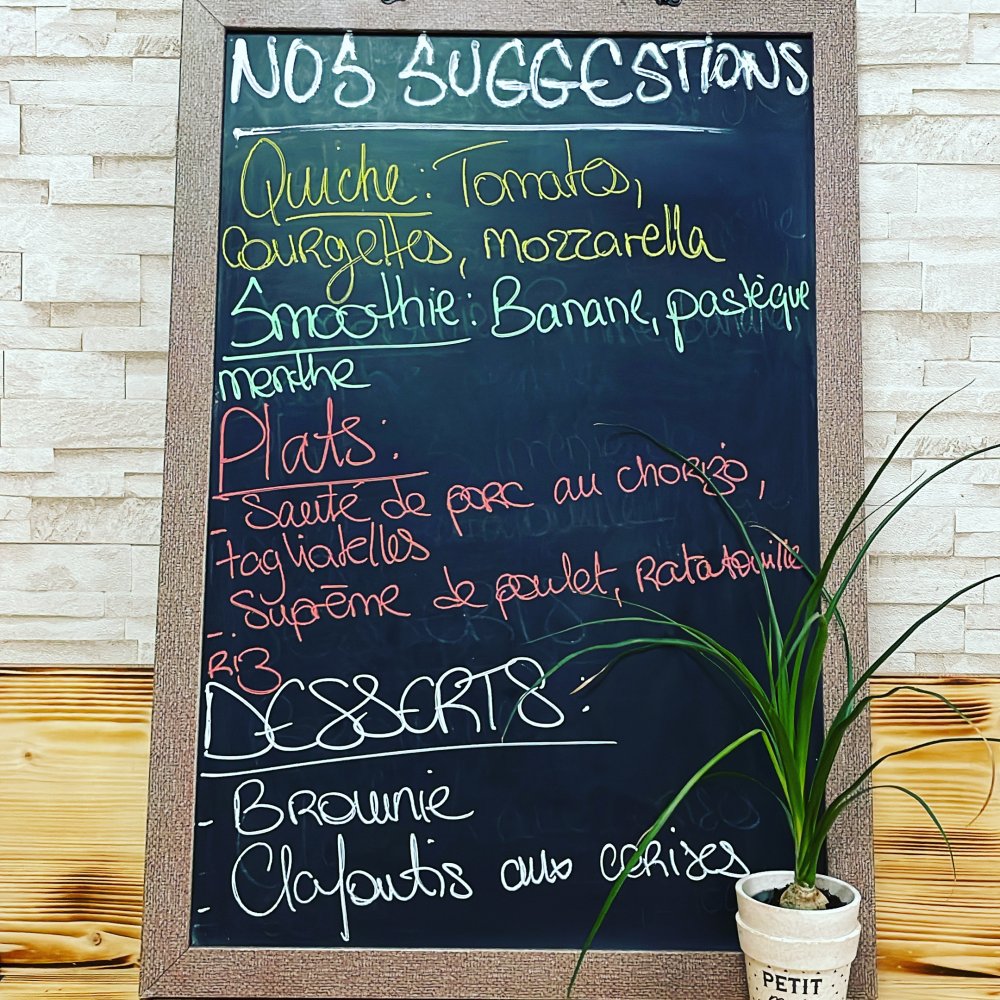 NOS SUGGESTIONS
Quiche : Tomates,
courgettes, mozzarella
Smoothie : Banane, pastèque
menthe
Plats :
- Sauté de porc au chorizo,
tagliatelles
- Suprême de poulet, Ratatouille
RIZ
DESSERTS :
- Brownie
- Clafoutis aux cerises
PETIT